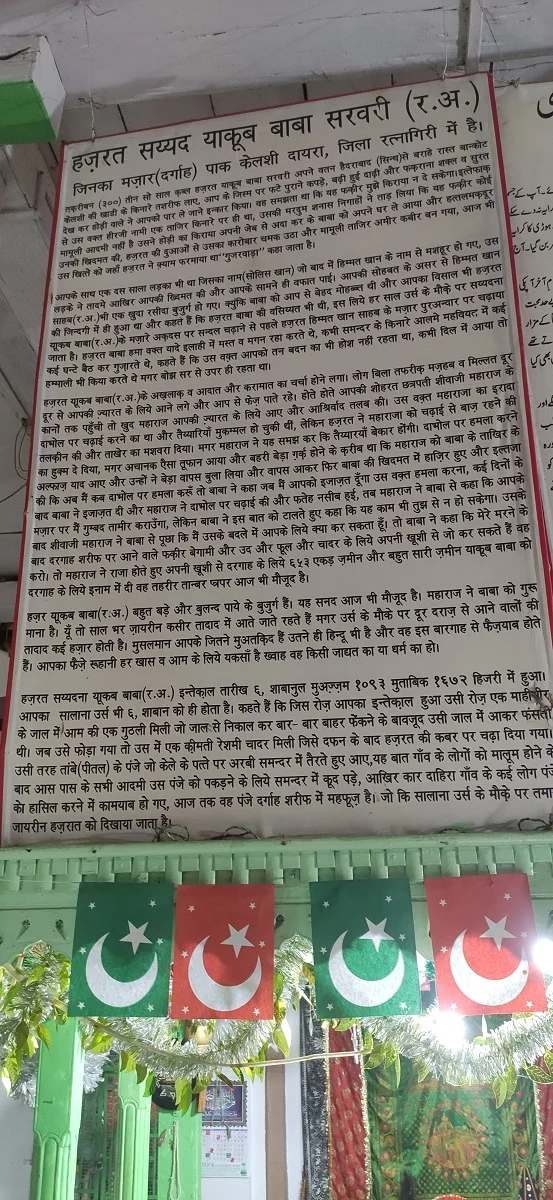 हज़रत सय्यद याकूब बाबा सरवरी (र.अ.)
जिनका मज़ार(दर्गाह) पाक केलशी दायरा, जिला रत्नागिरी में है।
तक़रीबन (३००) तीन सो साल क़ब्ल हज़रत याकूब बाबा सरवरी अपने वतन हैदराबाद (सिन्ध)से बराहे रास्त बान्कोट
केलशी की खाडी के किनारे तशरीफ लाए, आप के जिस्म पर फटे पुराने कपड़े, बढ़ी हुई दाढ़ी और फक़ीराना शक्ल व सुरत
देख कर होड़ी वाले ने आपको पार ले जाने इन्कार किया। वह समझता था कि यह फक़ीर मुझे किराया न दे सकेगा।इत्तेफाक़
से उस वक्त हीरजी नामी एक ताजिर किनारे पर ही था, उसकी मरदुम शनास निगाहों ने ताड़ लिया कि यह फक़ीर कोई
मामूली आदमी नहीं है उसने होड़ी का किराया अपनी जेब से अदा कर के बाबा को अपने घर ले आया और
उनकी खिदमत की, हज़रत की दुआओं से उसका कारोबार चमक उठा और मामूली ताजिर अमीर कबीर बन गया, आज भी
उस खित्ते को जहाँ हज़रत ने क़्याम फरमाया था"गुजरवाड़ा" कहा जाता है।
आपके साथ एक दस साला लड़का भी था जिसका नाम(सोलिस खान) जो बाद में हिम्मत खान के नाम से मशहूर हो गए, उस
लड़के ने तादमे आखिर आपकी खिदमत की और आपके सामने ही वफात पाई। आपकी सोहबत के असर से हिम्मत खान
साहब(र.अ.)भी एक खुदा रसीदा बुजुर्ग हो गए। क्युंकि बाबा को आप से बेहद मोहब्बत थी और आपका विसाल भी हज़रत
की जिन्दगी में ही हुआ था और कहते हैं कि हज़रत बाबा की वसिय्यत भी थी, इस लिये हर साल उर्स के मौक़े पर सय्यदना
याकूब बाबा(र.अ.)के मज़ारे अक़दस पर सन्दल चढ़ाने से पहले हज़रत हिम्मत खान साहब के मज़ार पुरअन्वार पर चढ़ाया
जाता है। हज़रत बाबा हमा वक्त यादे इलाही में मस्त व मगन रहा करते थे, कभी समन्दर के किनारे आलमे महवियत में कई
कई घन्टे बैठ कर गुजारते थे, कहते हैं कि उस वक्त आपको तन बदन का भी होश नहीं रहता था, कभी दिल में आया तो
हम्माली भी किया करते थे मगर बोझ सर से उपर ही रहता था।
हज़रत याकूब बाबा(र.अ.)के अखलाक़ व आदात और करामात का चर्चा होने लगा। लोग बिला तफरीक़ मज़हब व मिल्लत दूर
दूर से आपकी ज्यारत के लिये आने लगे और आप से फेज़ पाते रहे। होते होते आपकी शोहरत छत्रपती शीवाजी महाराज के
कानों तक पहुँची तो खुद महाराज आपकी ज़्यारत के लिये आए और आश्रिर्वाद तलब की। उस वक्त महाराजा का इरादा
दाभोल पर चढ़ाई करने का था और तैय्यारियाँ मुकम्मल हो चुकी थीं, लेकिन हज़रत ने महाराजा को चढ़ाई से बाज़ रहने की
तलक़ीन की और ताखेर का मशवरा दिया। मगर महाराज ने यह समझ कर कि तैय्यारयाँ बेकार होंगी। दाभोल पर हमला करने
का हुक्म दे दिया, मगर अचानक ऐसा तूफान आया और बहरी बेड़ा ग़र्क़ होने के क़रीब था कि महाराज को बाबा के ताखिर के
अल्फाज़ याद आए और उन्हों ने बेड़ा वापस बुला लिया और वापस आकर फिर बाबा की खिदमत में हाज़िर हुए और इल्तजा
की कि अब मैं कब दाभोल पर हमला करूँ तो बाबा ने कहा जब मैं आपको इजाज़त दूँगा उस वक्त हमला करना, कई दिनों के
बाद बाबा ने इजाज़त दी और महाराज ने दाभोल पर चढ़ाई की और फतेह नसीब हुई, तब महाराज ने बाबा से कहा कि आपके
मज़ार पर मैं गुम्बद तामीर कराउँगा, लेकिन बाबा ने इस बात को टालते हुए कहा कि यह काम भी तुझ से न हो सकेगा। उसके
बाद शीवाजी महाराज ने बाबा से पूछा कि मैं उसके बदले में आपके लिये क्या कर सकता हूँ। तो बाबा ने कहा कि मेरे मरने के
बाद दरगाह शरीफ पर आने वाले फक़ीर बेगामी और उद और फूल और चादर के लिये अपनी खूशी से जो कर सकते हैं वह
करो। तो महाराज ने राजा होते हुए अपनी खूशी से दरगाह के लिये ६५३ एकड़ ज़मीन और बहुत सारी ज़मीन याकूब बाबा को
दरगाह के लिये इनाम में दी वह तहरीर ताम्बर प्त्रपर आज भी मौजूद है।
हज़र यूाकूब बाबा(र.अ.) बहुत बड़े और बुलन्द पाये के बुजुर्ग हैं। यह सनद आज भी मौजूद है। महाराज ने बाबा को गुरू
माना है। यूँ तो साल भर ज़ायरीन कसीर तादाद में आते जाते रहते हैं मगर उर्स के मौक़े पर दूर दराज़ से आने वालों की
तादाद कई हज़ार होती है। मुसलमान आपके जितने मुअतक़िद हैं उतने ही हिन्दू भी है और वह इस बारगाह से फैज़याब होते
हैं। आपका फैज़े रूहानी हर खास व आम के लिये यकसाँ है ख्वाह वह किसी जाधत का या धर्म का हो।
हज़रत सय्यदना यूकूब बाबा(र.अ.) इन्तेक़ाल तारीख ६, शाबानुल मुअज़्ज़म १०९३ मुताबिक १६७२ हिजरी में हुआ।
आपका सालाना उर्स भी ६, शाबान को ही होता है। कहते हैं कि जिस रोज़ आपका इन्तेक़ाल हुआ उसी रोज़ एक माहीगीर
के जाल में आम की एक गुठली मिली जो जाल से निकाल कर बार- बार बाहर फेंकने के बावजूद उसी जाल में आकर फंसती
थी। जब उसे फोड़ा गया तो उस में एक क़ीमती रेशमी चादर मिली जिसे दफन के बाद हज़रत की कबर पर चढ़ा दिया गया।
उसी तरह तांबे(पीतल) के पंजे जो केले के पते पर अरबी समन्दर में तैरते हुए आए,यह बात गाँव के लोगों को मालुम होने के
बाद आस पास के सभी आदमी उस पंजे को पकड़ने के लिये समन्दर में कूद पड़े, आखिर कार दाहिरा गाँव के कई लोग पंजे
के हासिल करने में कामयाब हो गए, आज तक वह पंजे दर्गाह शरीफ में महफूज़ है। जो कि सालाना उर्स के मौक़े पर तमा
जायरीन हज़रात को दिखाया जाता है।